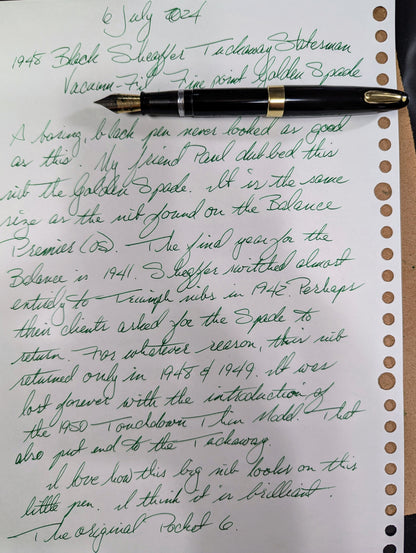 6 July 2024
1948 Black Sheaffer Tuckaway Statesman
Vacuum-Fill Fine point Golden Spade
A boring, black pen never looked as good
as this. My friend Paul dubbed this
nib the Golden Spade. It is the same
size as the nib found on the Balance
Premier (OS). The final year for the
Balance is 1941. Sheaffer switched almost
entirely to Triumph nibs in 1942. Perhaps
their clients asked for the Spade to
return. For whatever reason, this nib
returned only in 1948 & 1949. It was
lost forever with the introduction of
the 1950 Touchdown Thin Model. That
also put end to the Tuckaway.
I love how this big nib looks on this
little pen. I think it is brilliant.
The original Pocket 6.